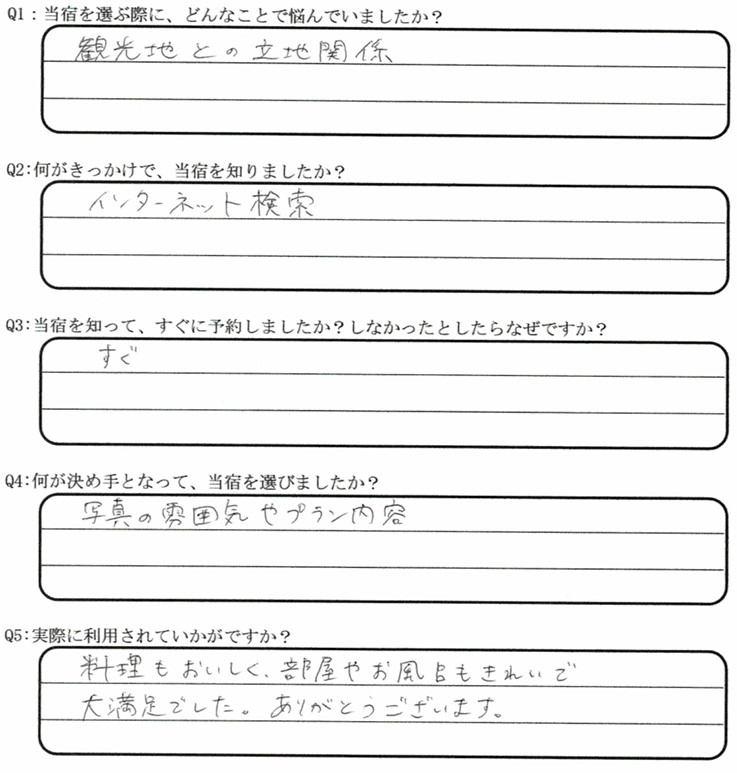 Q1：当宿を選ぶ際に、どんなことで悩んでいましたか？
観光地との立地関係
Q2:何がきっかけで、当宿を知りましたか？
インターネット検索
Q3:当宿を知って、すぐに予約しましたか？しなかったとしたらなぜですか？
すぐ
Q4:何が決め手となって、当宿を選びましたか？
写真の雰囲気やプラン内容
Q5:実際に利用されていかがですか？
料理もおいしく、部屋やお風呂もきれいで
大満足でした。ありがとうございます。